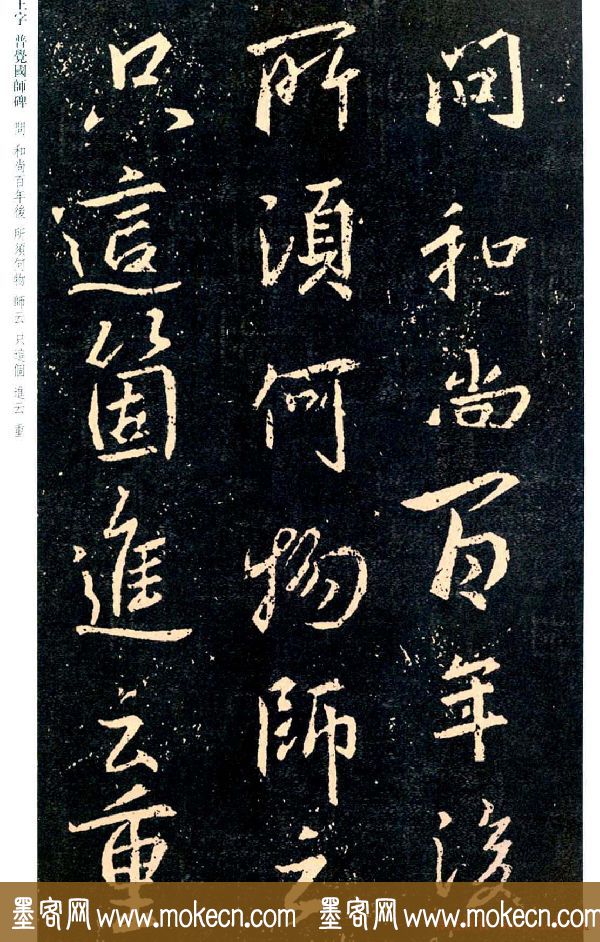 問和尚百年後
所須何物師云
只這箇進云重
王字 普覺國師碑 問 和尚百年後 所須何物 師云 只這個 進云 重
墨客网 www.mokecn.com 墨客网 www.mokecn.com